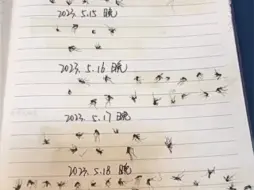 2023. 5.15 晚
2023. 5.16 晚
2023. 5.17 晚
2023. 5.18 晚